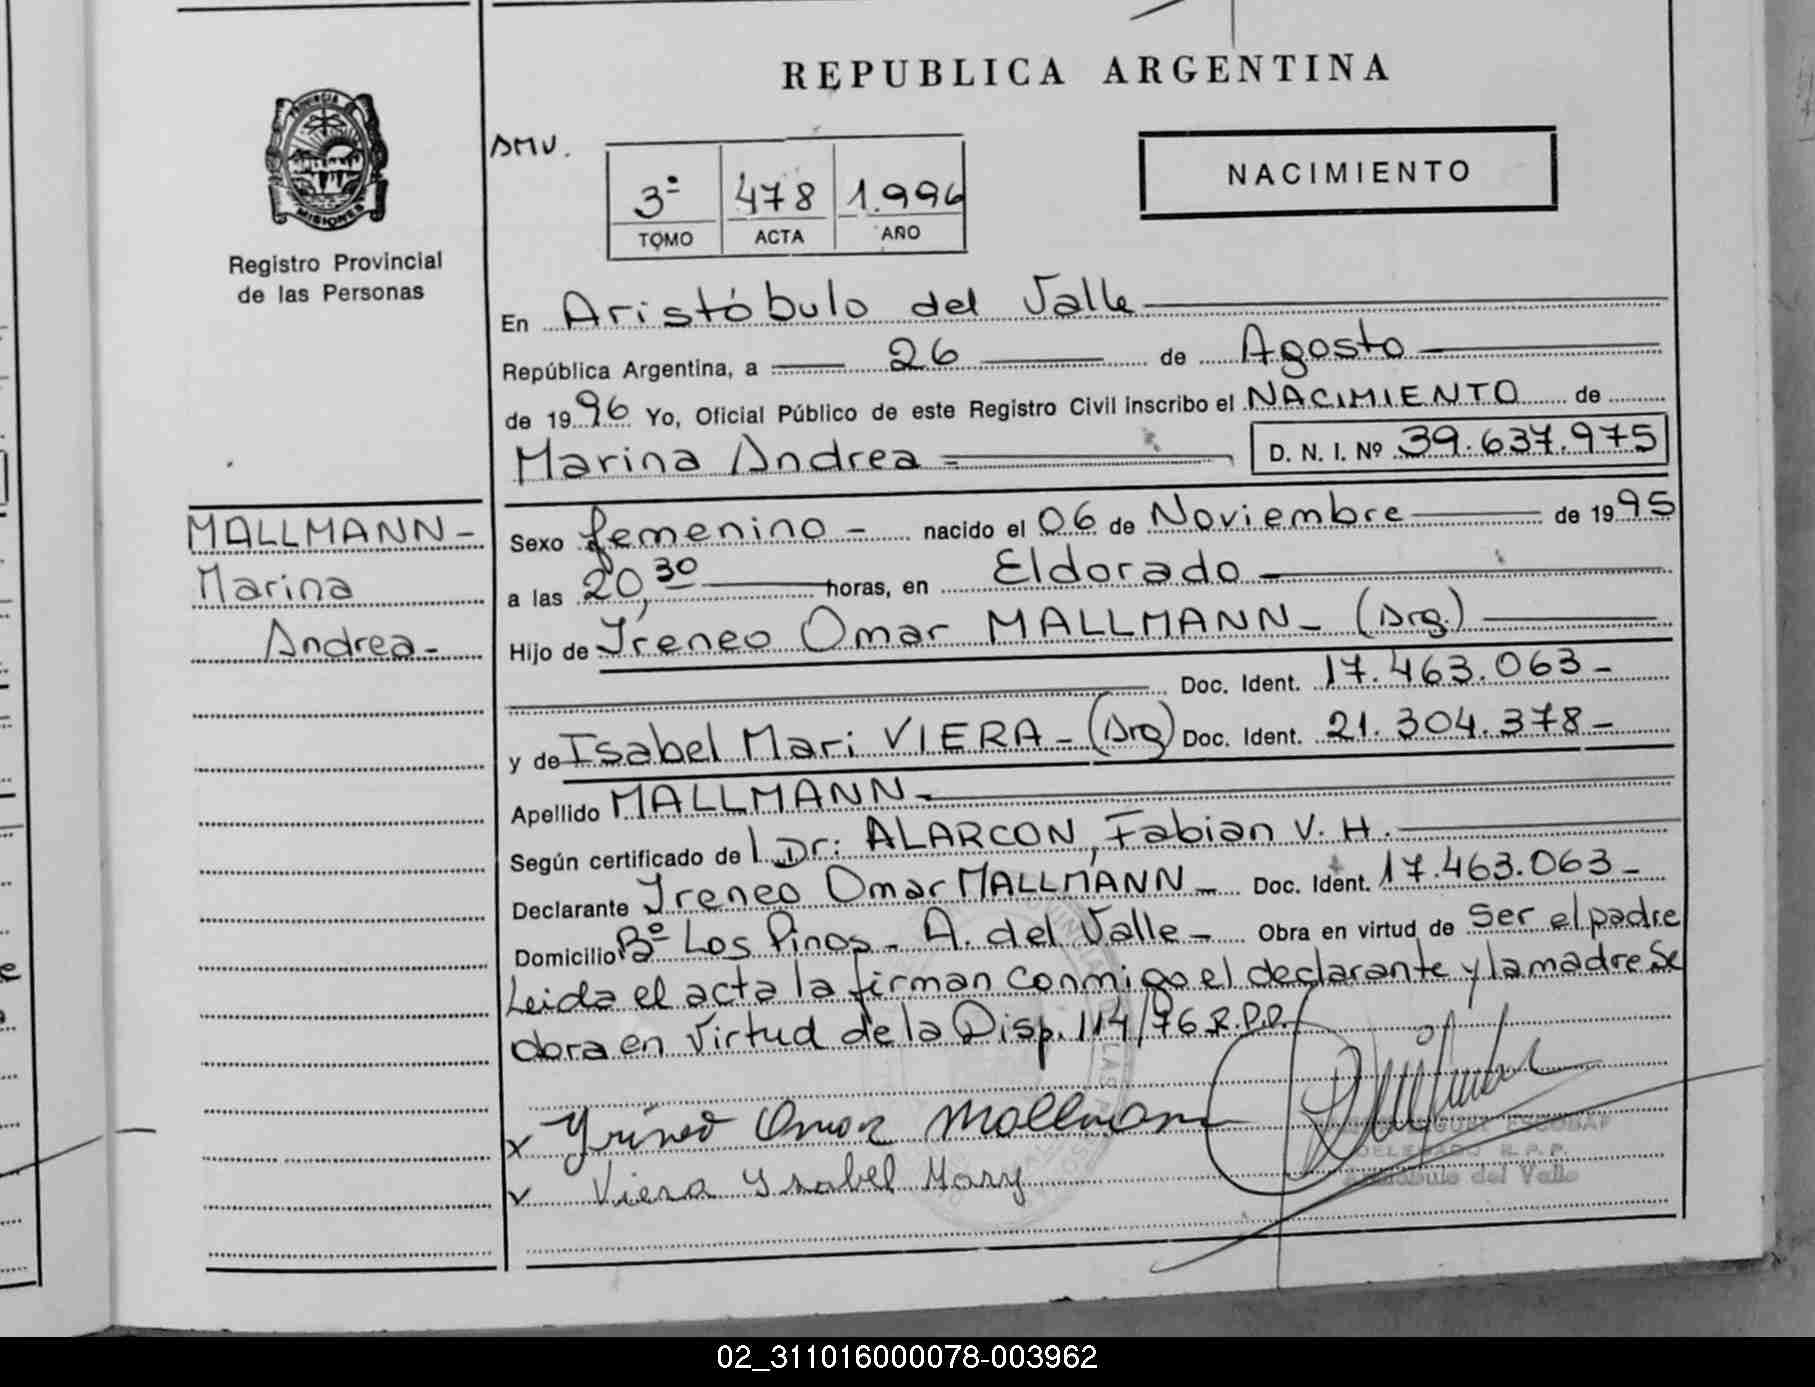 REPUBLICA ARGENTINA
PROVINCIA DE
MISIONES
Registro Provincial
de las Personas
AMV.
3º 478 1.996
TOMO ACTA AÑO
NACIMIENTO
En Aristóbulo del Valle
República Argentina, a 26 de Agosto
de 1996 Yo, Oficial Público de este Registro Civil inscribo el NACIMIENTO de
Marina Andrea = D. N. I. Nº 39.637.975
MALLMANN-
Marina
Andrea-
Sexo femenino - nacido el 06 de Noviembre de 1995
a las 20,30 horas, en Eldorado -
Hijo de Ireneo Omar MALLMANN- (Arg.)
Doc. Ident. 17.463.063-
y de Isabel Mari VIERA- (Arg) Doc. Ident. 21.304.378-
Apellido MALLMANN-
Según certificado de l Dr: ALARCON, Fabian V. H.
Declarante Ireneo Omar MALLMANN- Doc. Ident. 17.463.063-
Domicilio Bº Los Pinos- A. del Valle- Obra en virtud de Ser el padre
Leida el acta la firman conmigo el declarante y la madre Se
obra en virtud de la Disp. 114/76 R.P.P.
x Yrineo Omar Mallmann
x Viera Ysabel Mary
MIGUEL ESCOBAR
DELEGADO R. P. P.
Aristóbulo del Valle
02_311016000078-003962